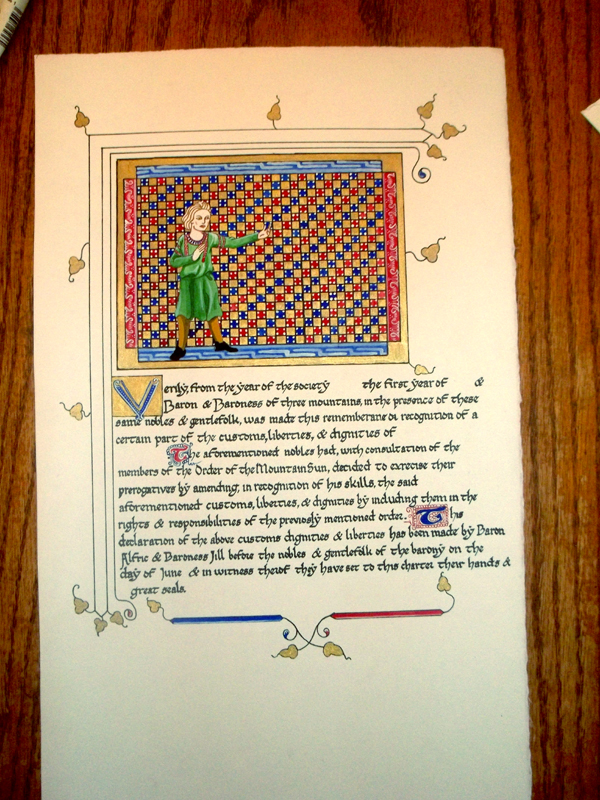 Verily, from the year of the society the first year of &
Baron & Baroness of three mountains, in the presence of these
same nobles & gentlefolk, was made this rememberanc of recognition of a
certain part of the customs, liberties, & dignities of
The aforementioned nobles had, with consultation of the
members of the Order of the Mountain Sun, decided to exercise their
prerogatives by amending, in recognition of his skills, the said
aforementioned customs, liberties, & dignities by including them in the
rights & responsibilities of the previosly mentioned order. This
declaration of the above customs dignities & liberties has been made by Baron
Alfric & Baroness Jill before the nobles & gentlefolk of the barony on the
day of June & in witness therof they have set to this charter their hands &
great seals.